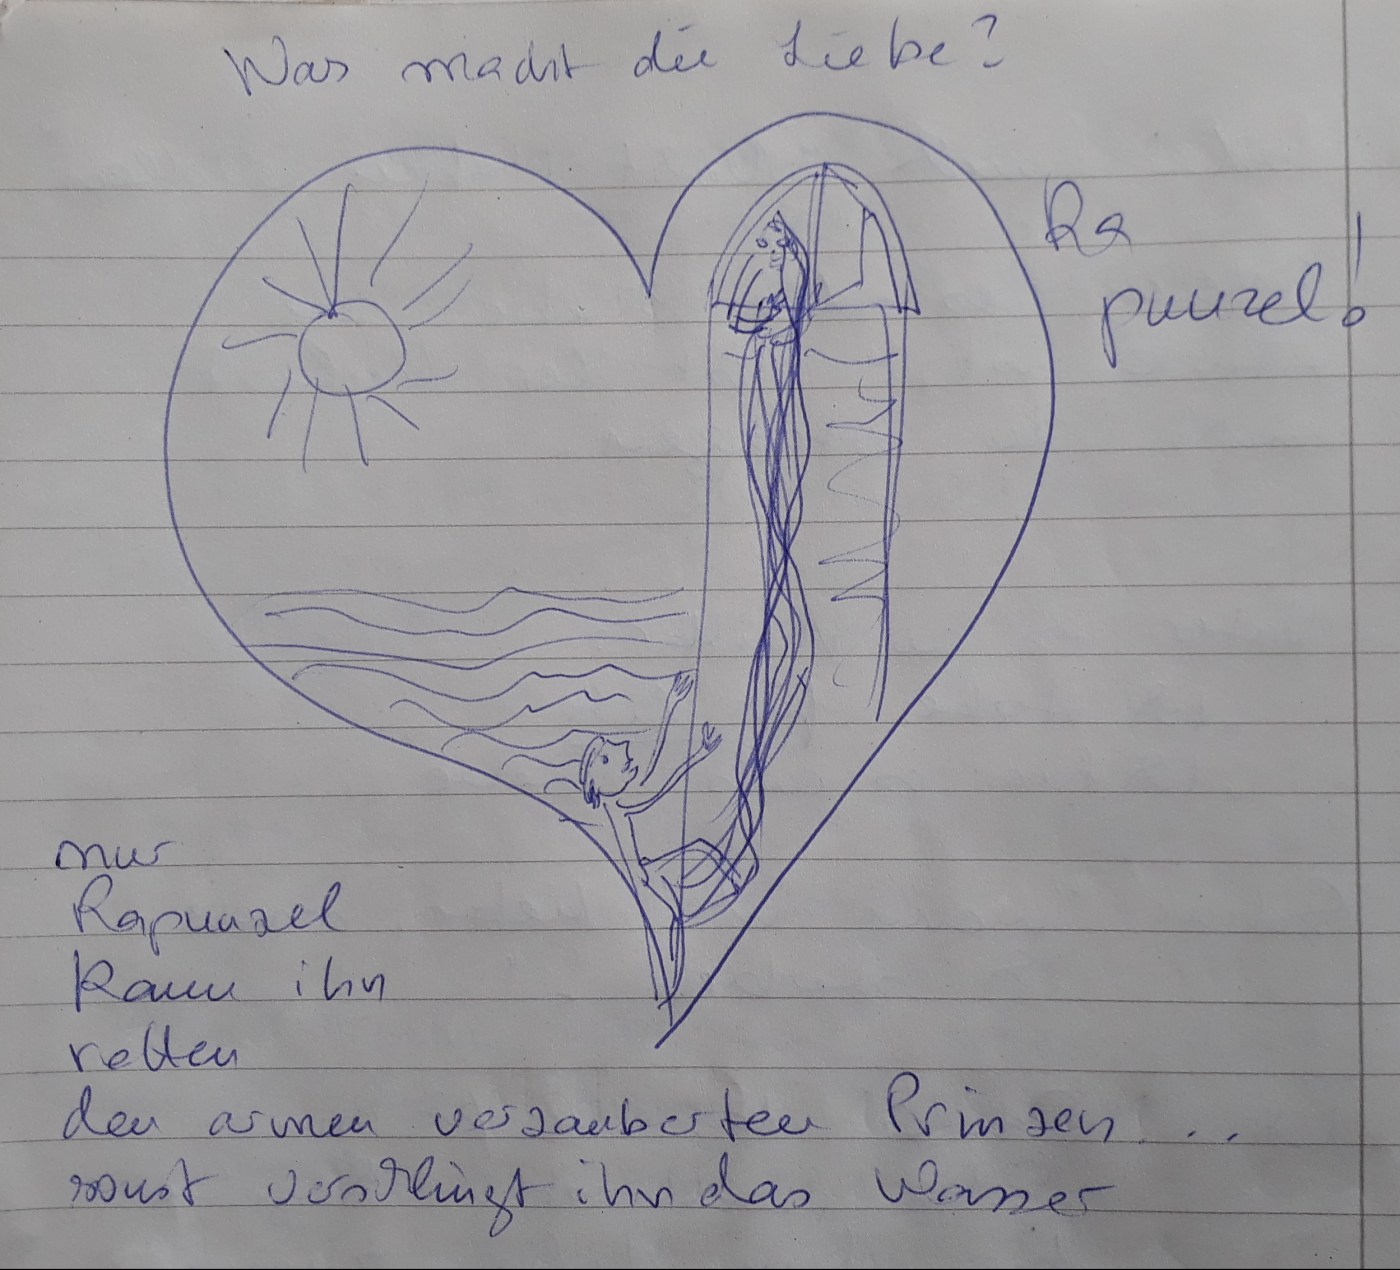 Was macht die Liebe?
Ra
punzel!
nur
Rapunzel
kann ihn
retten
den armen verzauberten Prinzen...
sonst verschlingt ihn das Wasser